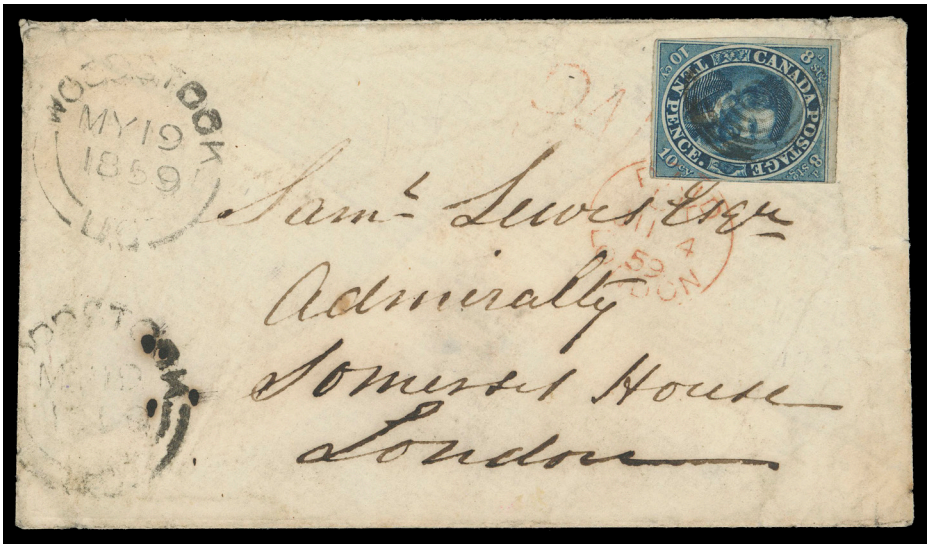 WOODSTOCK
MY 19
1859
U.C.
CANADA POSTAGE
TEN PENCE.
8 Stg.
10 Cy
10 Cy
8 Stg.
PAID
JU 4
59
LONDON
Saml. Lewis Esqr
Admiralty
Somerset House
London
WOODSTOCK
MY 19